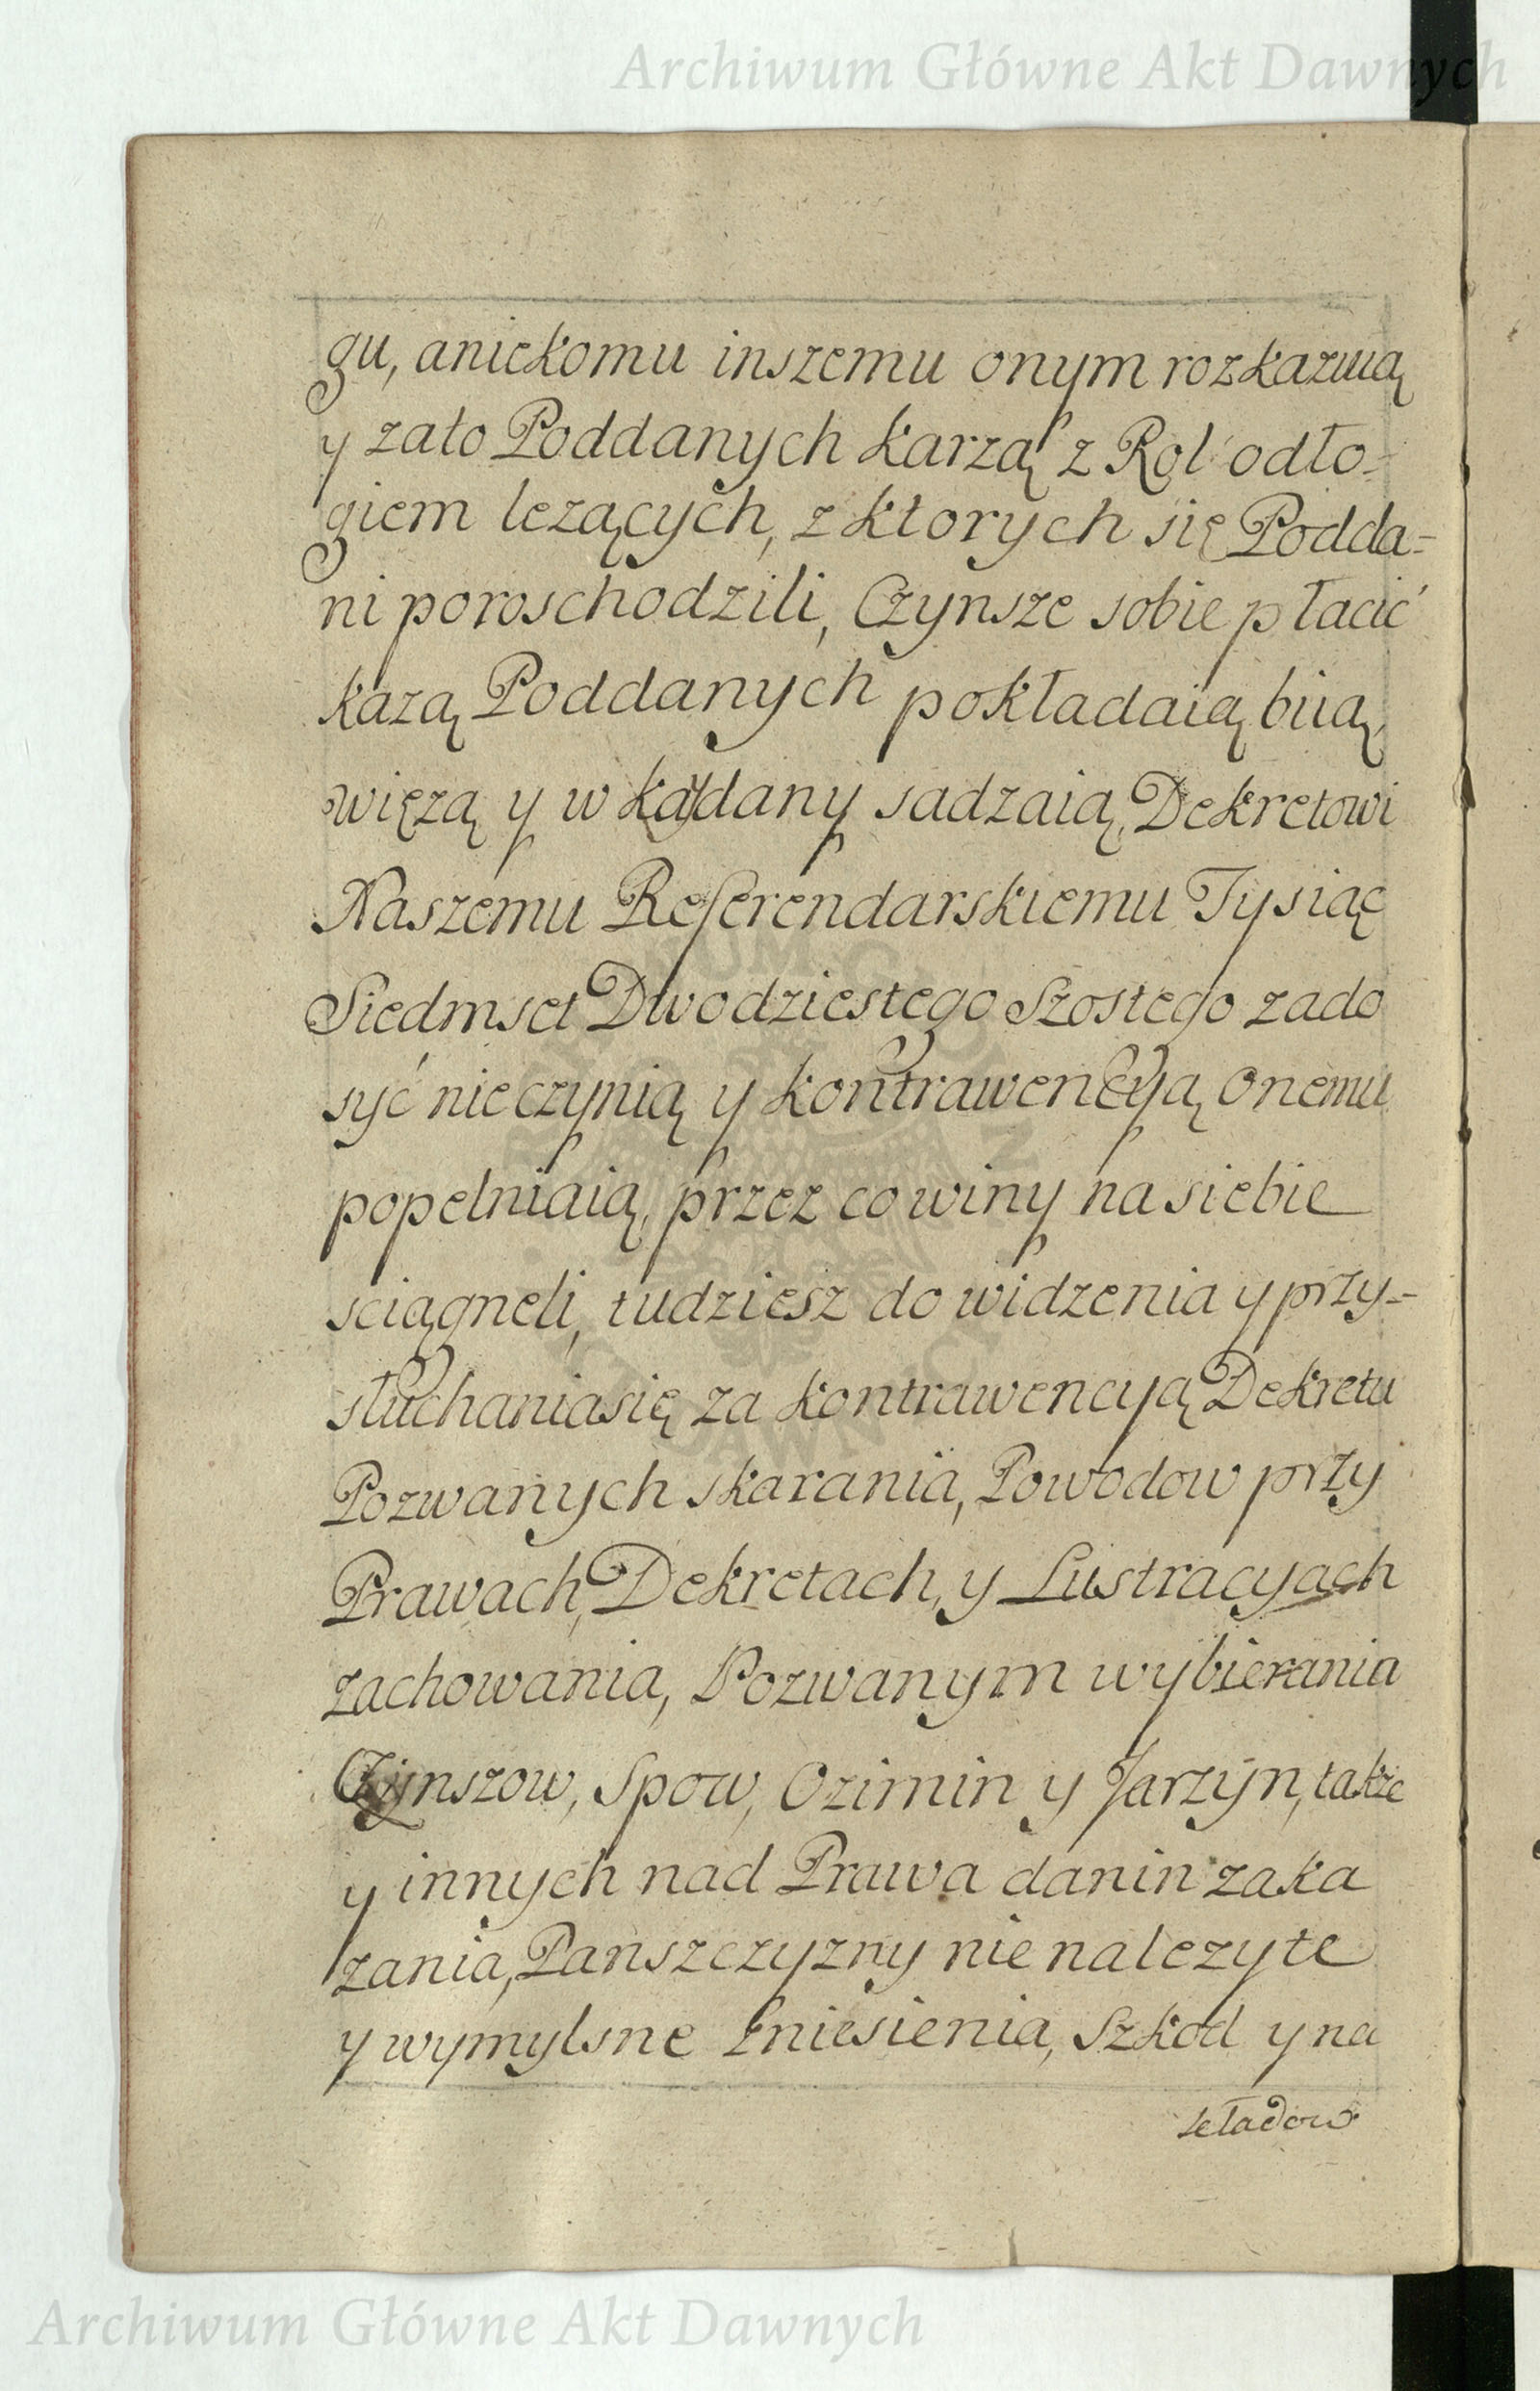 Archiwum Główne Akt Dawnych
gu, aniekomu inszemu onym rozkazuią
y zato Poddanych karzą z Rol odło-
giem lezących, z ktorych się Podda-
ni poroschodzili, Czynsze sobie płacić
kazą Poddanych pokładaią biią,
więzą y w kaydany sadzaią, Dekretowi
Naszemu Referendarskiemu Tysiąc
Siedmset Dwodziestego Szostego zado
syć nieczynią y kontrawencyą onemu
popelniaią, przez co winy na siebie
sciągneli, tudziesz do widzenia y przy-
słuchania się za kontrawencyą Dekretu
Pozwanych skarania, Powodow przy
Prawach, Dekretach, y Lustracyach
zachowania, Pozwanym wybierania
Czynszow, Spow, Ozimin y Jarzyn, także
y innych nad Prawa danin zaka
zania, Panszczyzny nie nalezyte
y wymylsne zniesienia, Szkod y na
kładow
Archiwum Główne Akt Dawnych